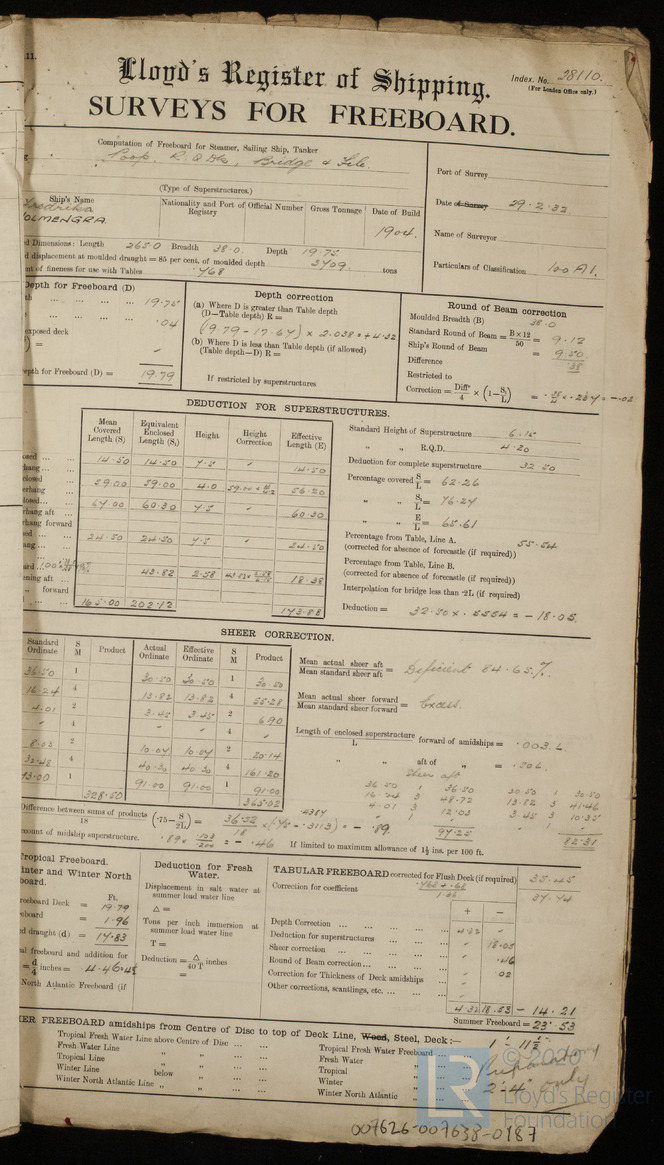 11.
Lloyd's Register of Shipping.
Index. No. 28110.
(For London Office only.)
SURVEYS FOR FREEBOARD.
Computation of Freeboard for Steamer, Sailing Ship, Tanker
Poop, R.Q.Dk, Bridge & Fcle.
(Type of Superstructures.)
Port of Survey
Date of Survey 29.2.32
Name of Surveyor
Particulars of Classification 100 A1.
Ship's Name
Fredrika
HOLMENGRA
Nationality and Port of Registry
Official Number
Gross Tonnage
Date of Build
1904.
Dimensions: Length 265.0 Breadth 38.0 Depth 19.75
displacement at moulded draught = 85 per cent. of moulded depth 3709. tons
of fineness for use with Tables .768
Depth for Freeboard (D)
19.75
.04
exposed deck
Depth for Freeboard (D) = 19.79
Depth correction
(a) Where D is greater than Table depth
(D—Table depth) R =
(19.79 - 17.67) × 2.038 = + 4.32
(b) Where D is less than Table depth (if allowed)
(Table depth—D) R =
If restricted by superstructures
Round of Beam correction
Moulded Breadth (B) 38.0
Standard Round of Beam = B×12/50 = 9.12
Ship's Round of Beam = 9.50
Difference .38
Restricted to
Correction = Diff/4 × (1 - S/L) =
DEDUCTION FOR SUPERSTRUCTURES.
Mean Covered Length (S)
Equivalent Enclosed Length (S₁)
Height
Height Correction
Effective Length (E)
14.50 14.50 7.5 14.50
59.00 59.00 4.0 56.20
67.00 60.30 7.5 60.30
24.50 24.50 7.5 24.50
43.82 2.58 18.38
165.00 202.12 173.88
Standard Height of Superstructure 6.15
" " R.Q.D. 4.20
Deduction for complete superstructure 32.50
Percentage covered S/L = 62.26
" " S₁/L = 76.27
" " E/L = 65.61
Percentage from Table, Line A. 55.54
(corrected for absence of forecastle (if required))
Percentage from Table, Line B.
(corrected for absence of forecastle (if required))
Interpolation for bridge less than ·2L (if required)
Deduction = 32.50 × .5554 = - 18.05.
SHEER CORRECTION.
Standard Ordinate
S M
Product
Actual Ordinate
Effective Ordinate
S M
Product
36.50 1 30.50 30.50 1 30.50
16.24 4 13.82 13.82 4 55.28
4.01 2 3.45 3.45 2 6.90
4 4
8.02 2 10.07 10.07 2 20.14
32.48 4 40.30 40.30 4 161.20
73.00 1 91.00 91.00 1 91.00
328.50 365.02
Mean actual sheer aft / Mean standard sheer aft = Deficient 84.65%.
Mean actual sheer forward / Mean standard sheer forward = Excess.
Length of enclosed superstructure / L forward of amidships = .003 L
" " aft of " =
Sheer aft
36.50 1 36.50 30.50 1 30.50
16.24 3 48.72 13.82 3 41.46
4.01 3 12.03 3.45 3 10.35
97.25 82.31
Difference between sums of products / 18 (.75 - S/2L) = 36.52 / 18 × (.75 - .3113) = - .89.
.4387
account of midship superstructure. .89 × = - .46
If limited to maximum allowance of 1½ ins. per 100 ft.
Tropical Freeboard.
Winter and Winter North
board.
Ft.
Freeboard Deck = 19.79
board = 1.96
draught (d) = 17.83
freeboard and addition for
d/4 inches =
North Atlantic Freeboard (if
Deduction for Fresh Water.
Displacement in salt water at summer load water line
Δ =
Tons per inch immersion at summer load water line
T =
Deduction = Δ/40 T inches
=
TABULAR FREEBOARD corrected for Flush Deck (if required) 35.45
Correction for coefficient .768 + .68 / 1.36 37.74
+ −
Depth Correction 4.32
Deduction for superstructures 18.05
Sheer correction .46
Round of Beam correction .02
Correction for Thickness of Deck amidships
Other corrections, scantlings, etc.
4.32 18.53 - 14.21
Summer Freeboard = 23.53
FREEBOARD amidships from Centre of Disc to top of Deck Line, Wood, Steel, Deck:—
1' 11½"
Tropical Fresh Water Line above Centre of Disc
Fresh Water Line " "
Tropical Line " "
Winter Line below "
Winter North Atlantic Line " "
Tropical Fresh Water Freeboard
Fresh Water "
Tropical "
Winter "
Winter North Atlantic "
2'-4" only
LR
© 2020
Lloyd's Register
Foundation
007626-007638-0187